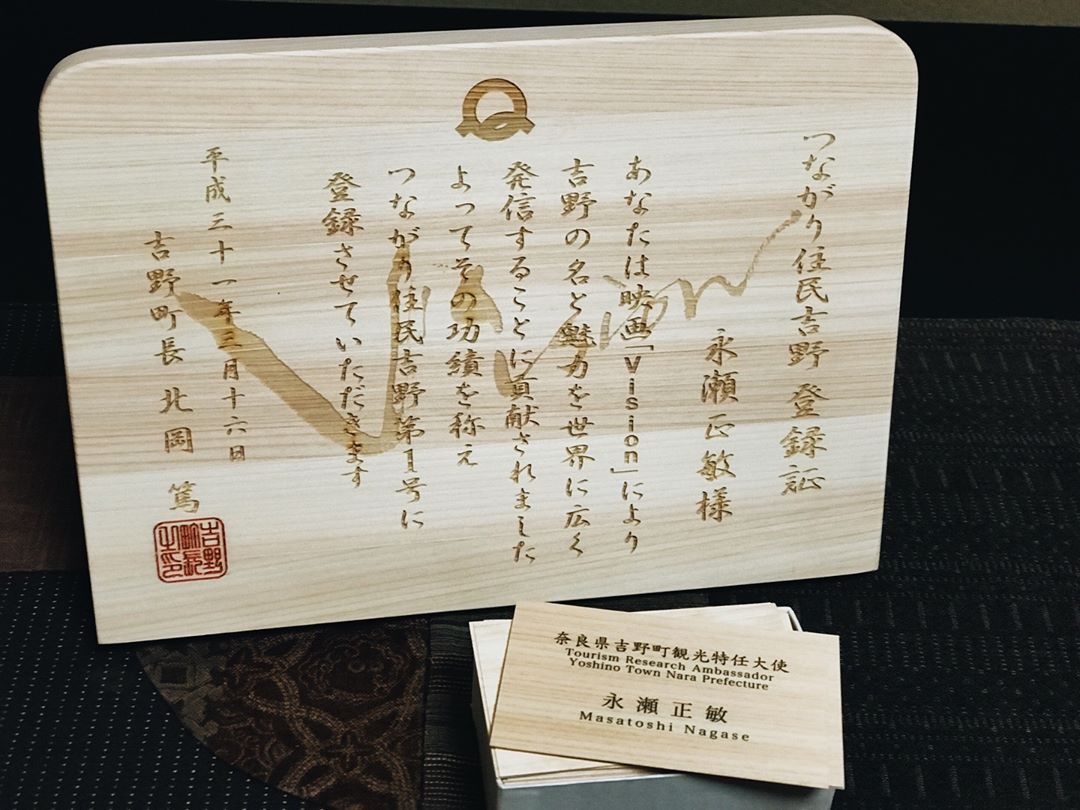 つながり住民吉野 登録証
永瀬正敏様
あなたは映画「Vision」により
吉野の名と魅力を世界に広く
発信することに貢献されました
よってその功績を称え
つながり住民吉野第1号に
登録させていただきます
平成三十一年三月十六日
吉野町長 北岡 篤
吉野町長之印
Vision
奈良県吉野町観光特任大使
Tourism Research Ambassador
Yoshino Town Nara Prefecture
永瀬正敏
Masatoshi Nagase